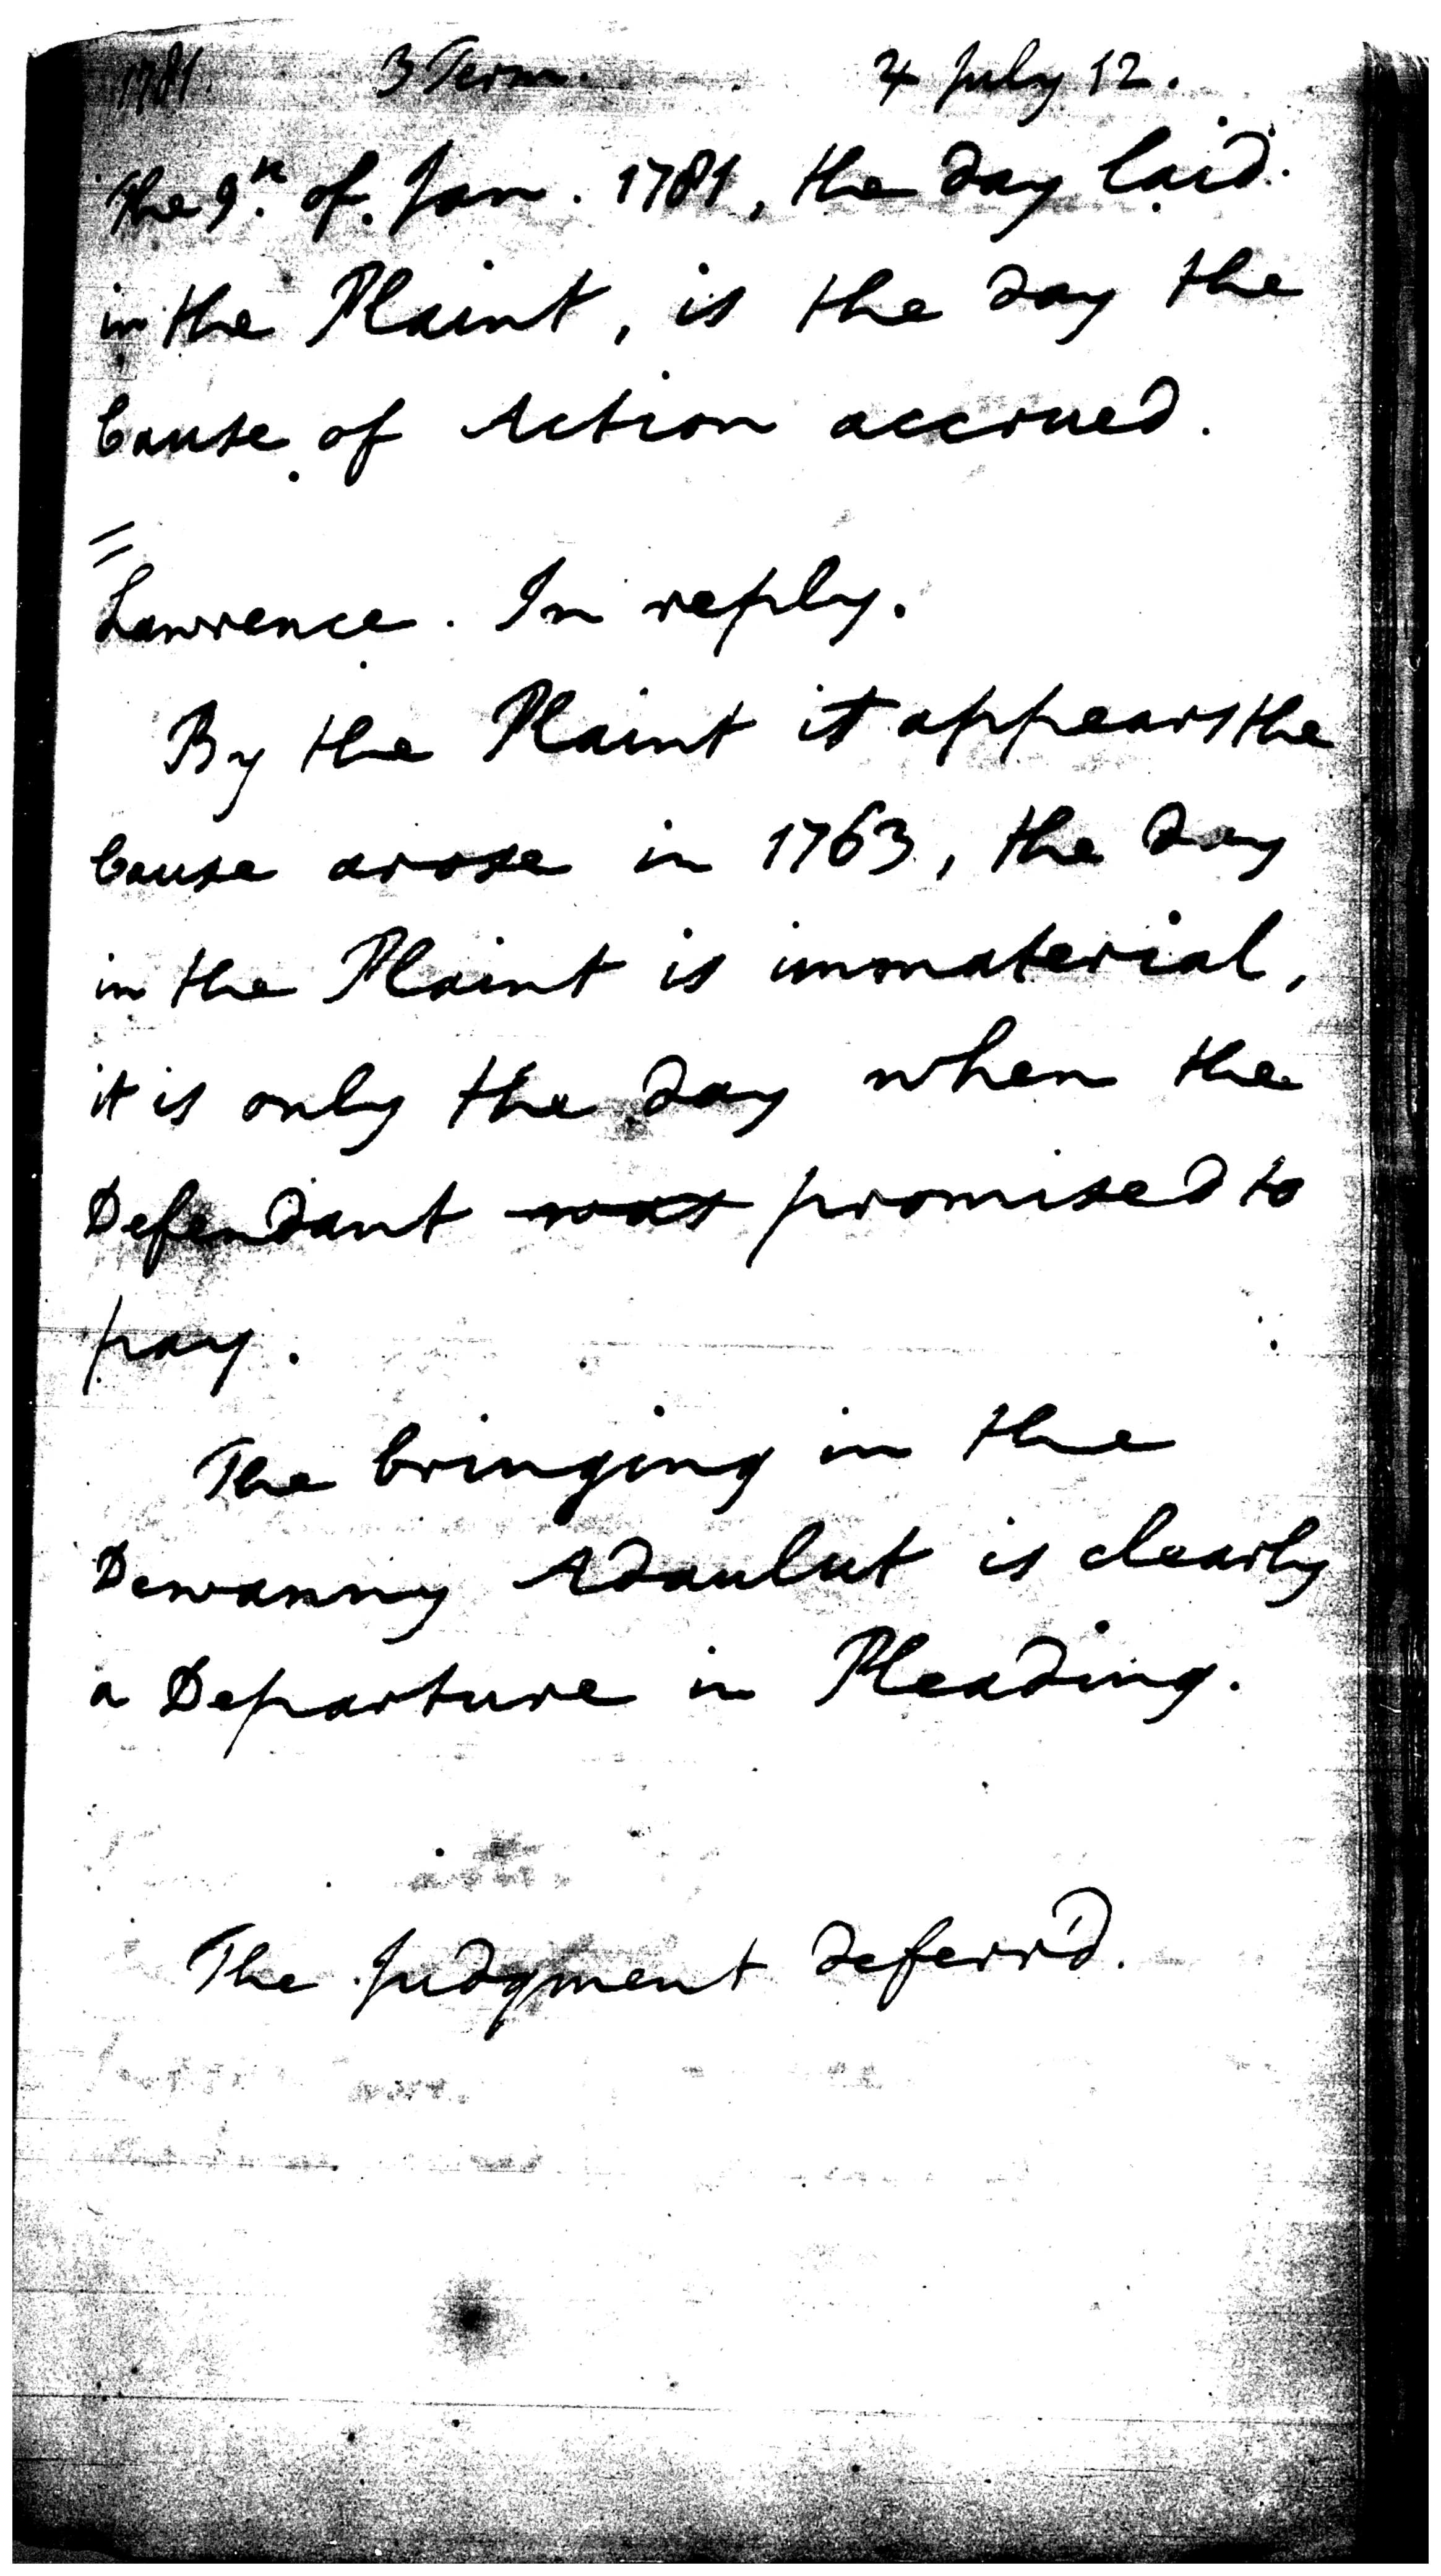 1781. 3 Term. ♃ July 12.
The 9th. of Jan. 1781, the day laid
in the Plaint, is the day the
Cause of Action accrued.
=
Lawrence. In reply.
By the Plaint it appears the
Cause arose in 1763, the day
in the Plaint is immaterial,
it is only the day when the
Defendant was promised to
pay.
The bringing in the
Dewanny Adaulut is clearly
a Departure in Pleading.
The Judgment deferr'd.